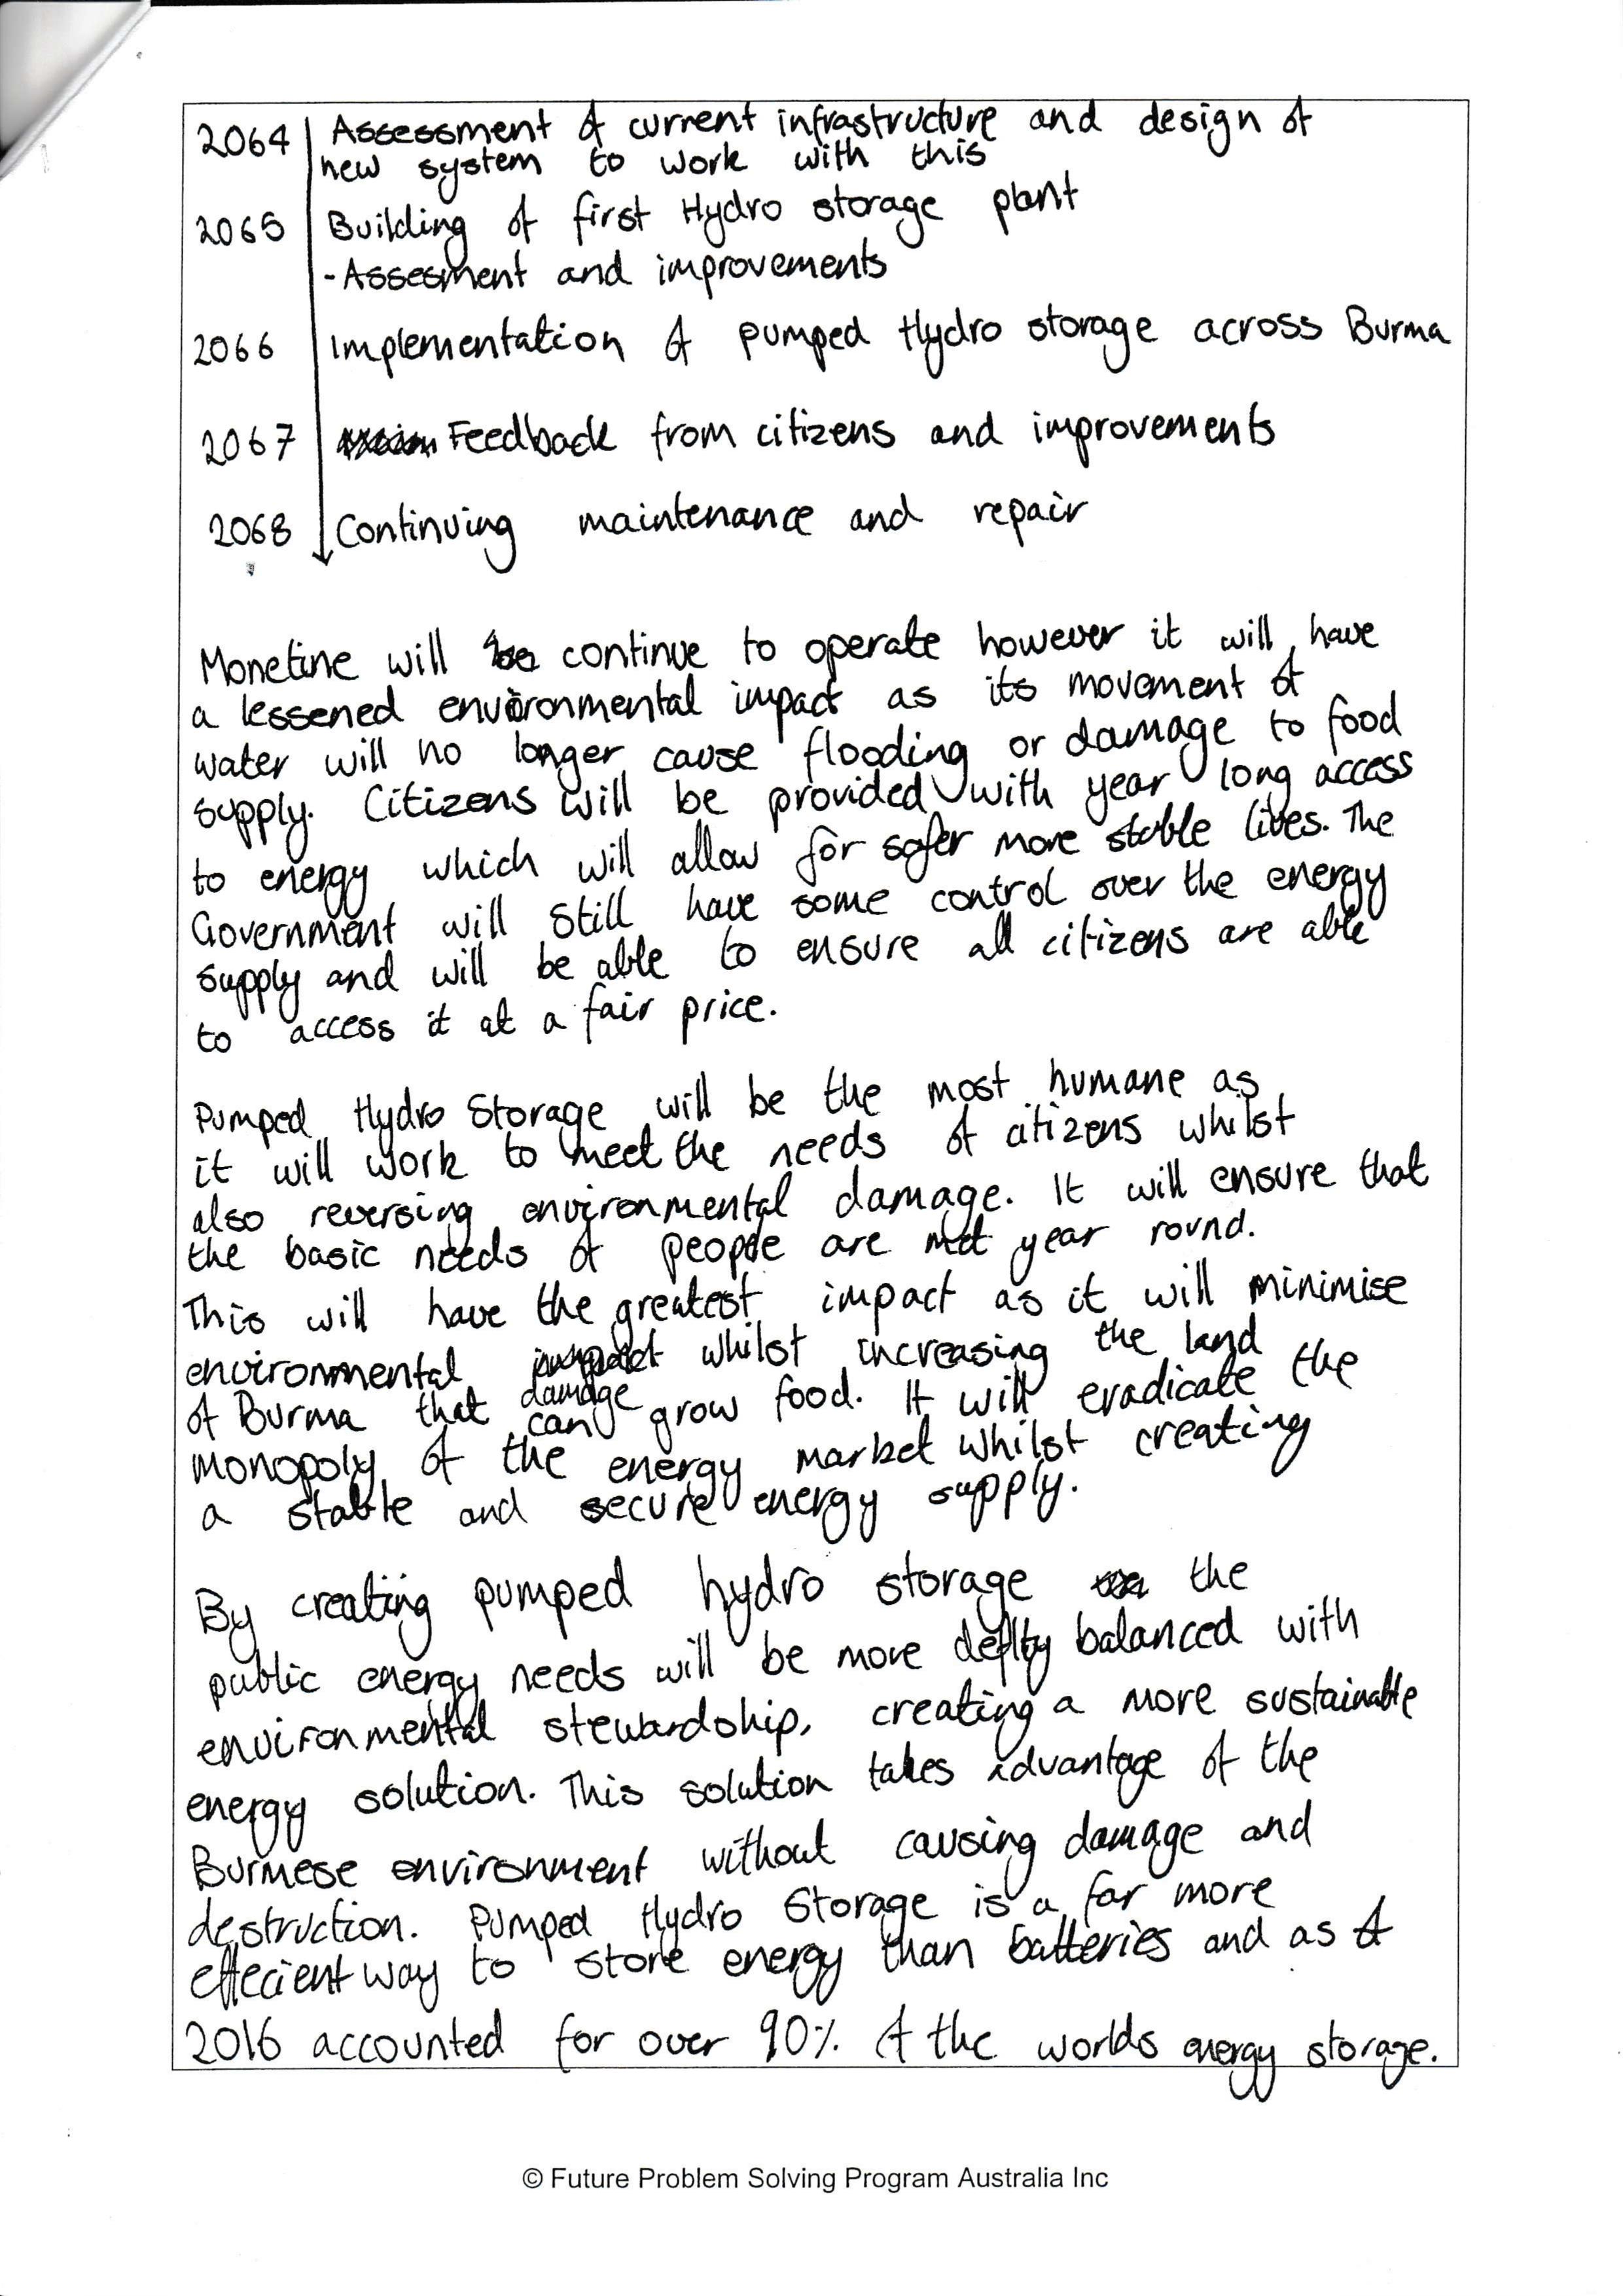 2064 Assessment of current infrastructure and design of
new system to work with this
2065 Building of first Hydro storage plant
- Assesment and improvements
2066 Implementation of pumped Hydro storage across Burma
2067 Feedback from citizens and improvements
2068 Continuing maintenance and repair
Monetine will continue to operate however it will have
a lessened environmental impact as its movement of
water will no longer cause flooding or damage to food
supply. Citizens will be provided with year long access
to energy which will allow for safer more stable lives. The
Government will still have some control over the energy
supply and will be able to ensure all citizens are able
to access it at a fair price.
Pumped Hydro Storage will be the most humane as
it will work to meet the needs of citizens whilst
also reversing environmental damage. It will ensure that
the basic needs of people are met year round.
This will have the greatest impact as it will minimise
environmental damage whilst increasing the land
of Burma that can grow food. It will eradicate the
monopoly of the energy market whilst creating
a stable and secure energy supply.
By creating pumped hydro storage the
public energy needs will be more deftly balanced with
environmental stewardship, creating a more sustainable
energy solution. This solution takes advantage of the
Burmese environment without causing damage and
destruction. Pumped Hydro Storage is a far more
effecient way to store energy than batteries and as of
2016 accounted for over 90% of the worlds energy storage.
© Future Problem Solving Program Australia Inc